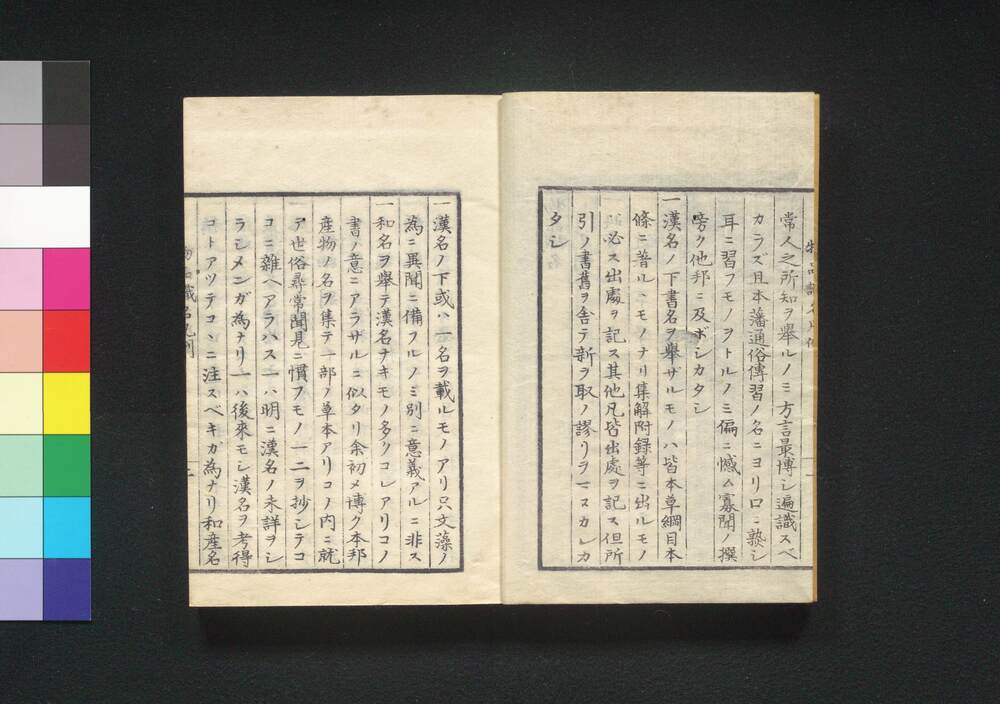 常人之所知ヲ舉ルノミ方言最博シ遍識スベ
カラズ且本藩通俗傳習ノ名ニヨリ口ニ熟シ
耳ニ習フモノヲトルノミ偏ニ憾ム寡聞ノ撰
旁ク他邦ニ及ボシカタシ
一漢名ノ下書名ヲ舉ザルモノハ皆本草綱目本
條ニ普ルヽモノナリ集解附録等ニ出ルモノ
必ス出處ヲ記ス其他凡皆出處ヲ記ス但所
引ノ書舊ヲ舎テ新ヲ取ノ謬リヲマスカレカ
タシ
一漢名ノ下或ハ一名ヲ載ルモノアリ只文藻ノ
為ニ異聞ニ備フルノミ別ニ意義アルニ非ス
一和名ヲ舉テ漢名ナキモノ多クコレアリコノ
書ノ意ニアラザルニ似タリ余初メ博ク本邦
産物ノ名ヲ集テ一部ノ草本アリコノ内ニ就
テ世俗尋常聞見ニ慣フモノ一二ヲ抄シテコ
コニ雜ヘアラハス一ハ明ニ漢名ノ未詳ヲシ
ラシメンガ為ナリ一ハ後來モシ漢名ヲ考得
コトアツテコヽニ注スベキガ為ナリ和産名
識名凡例